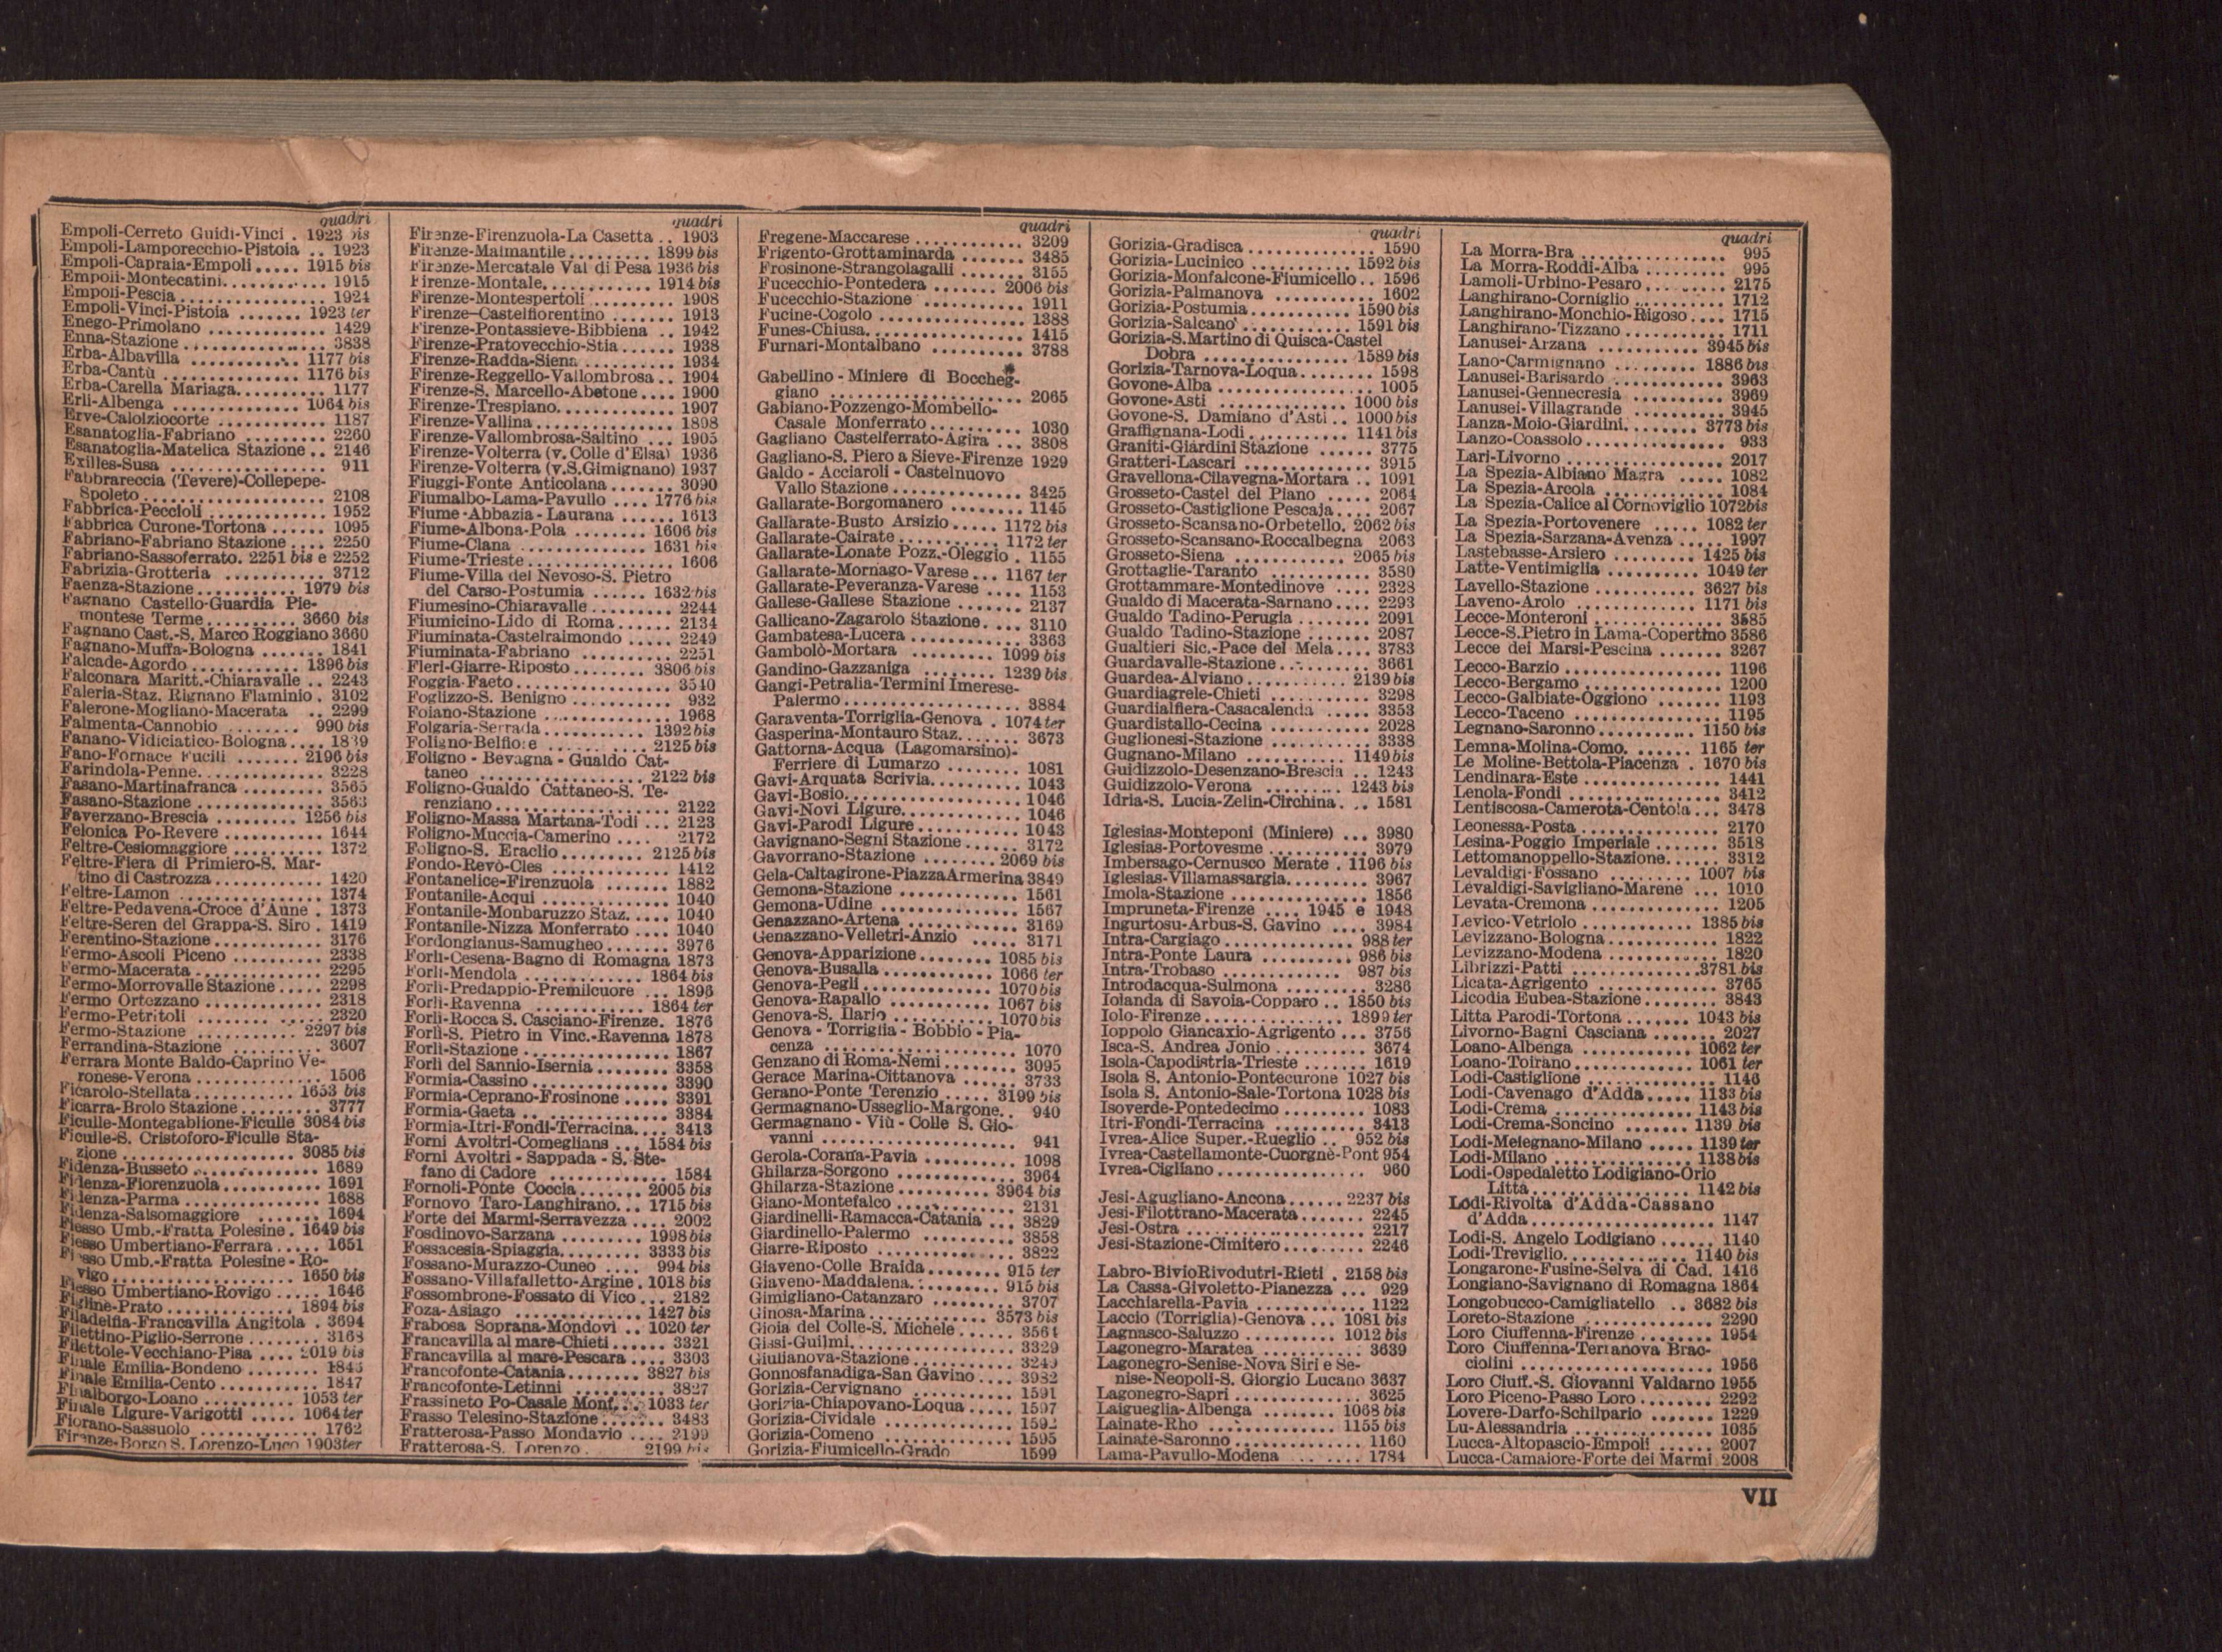 quadri
Empoli-Cerreto Guidi-Vinci . 1923 bis
Empoli-Lamporecchio-Pistoia .. 1923
Empoli-Capraia-Empoli ..... 1915 bis
Empoli-Montecatini. ........... 1915
Empoli-Pescia ................ 1924
Empoli-Vinci-Pistoia ....... 1923 ter
Enego-Primolano ............ 1429
Enna-Stazione ............... 3838
Erba-Albavilla ............ 1177 bis
Erba-Cantù .............. 1176 bis
Erba-Carella Mariaga. ......... 1177
Erli-Albenga .............. 1064 bis
Erve-Calolziocorte ............ 1187
Esanatoglia-Fabriano ......... 2260
Esanatoglia-Matelica Stazione .. 2146
Exilles-Susa ................ 911
Fabbrareccia (Tevere)-Collepepe-
Spoleto .................. 2108
Fabbrica-Peccioli ............ 1952
Fabbrica Curone-Tortona ...... 1095
Fabriano-Fabriano Stazione .... 2250
Fabriano-Sassoferrato. 2251 bis e 2252
Fabrizia-Grotteria ........... 3712
Faenza-Stazione ........... 1979 bis
Fagnano Castello-Guardia Pie-
montese Terme .......... 3660 bis
Fagnano Cast.-S. Marco Roggiano 3660
Fagnano-Muffa-Bologna ....... 1841
Falcade-Agordo ............ 1396 bis
Falconara Maritt.-Chiaravalle .. 2243
Faleria-Staz. Rignano Flaminio . 3102
Falerone-Mogliano-Macerata .. 2299
Falmenta-Cannobio ........ 990 bis
Fanano-Vidiciatico-Bologna .... 1839
Fano-Fornace Fucili ....... 2196 bis
Farindola-Penne. ............ 3228
Fasano-Martinafranca ......... 3565
Fasano-Stazione ............. 3563
Faverzano-Brescia ......... 1256 bis
Felonica Po-Revere ........... 1644
Feltre-Cesiomaggiore .......... 1372
Feltre-Fiera di Primiero-S. Mar-
tino di Castrozza ........... 1420
Feltre-Lamon ............... 1374
Feltre-Pedavena-Croce d'Aune . 1373
Feltre-Seren del Grappa-S. Siro . 1419
Ferentino-Stazione ............ 3176
Fermo-Ascoli Piceno .......... 2338
Fermo-Macerata ............. 2295
Fermo-Morrovalle Stazione ..... 2298
Fermo Ortezzano ............ 2318
Fermo-Petritoli .............. 2320
Fermo-Stazione ........... 2297 bis
Ferrandina-Stazione .......... 3607
Ferrara Monte Baldo-Caprino Ve-
ronese-Verona ............. 1506
Ficarolo-Stellata ........... 1653 bis
Ficarra-Brolo Stazione ........ 3777
Ficulle-Montegablione-Ficulle 3084 bis
Ficulle-S. Cristoforo-Ficulle Sta-
zione ................... 3085 bis
Fidenza-Busseto ............. 1689
Fidenza-Fiorenzuola ........... 1691
Fidenza-Parma .............. 1688
Fidenza-Salsomaggiore ....... 1694
Fiesso Umb.-Fratta Polesine . 1649 bis
Fiesso Umbertiano-Ferrara ..... 1651
Fiesso Umb.-Fratta Polesine - Ro-
vigo .................... 1650 bis
Fiesso Umbertiano-Rovigo ..... 1646
Figline-Prato ............. 1894 bis
Filadelfia-Francavilla Angitola . 3694
Filettino-Piglio-Serrone ........ 3163
Filettole-Vecchiano-Pisa .... 2019 bis
Finale Emilia-Bondeno ........
Finale Emilia-Cento ........... 1847
Finalborgo-Loano .......... 1053 ter
Finale Ligure-Varigotti ..... 1064 ter
Fiorano-Sassuolo ............. 1762
Firenze-Borgo S. Lorenzo-Luco 1903 ter
quadri
Firenze-Firenzuola-La Casetta .. 1903
Firenze-Malmantile ......... 1899 bis
Firenze-Mercatale Val di Pesa 1936 bis
Firenze-Montale. ........... 1914 bis
Firenze-Montespertoli ......... 1908
Firenze-Castelfiorentino ....... 1913
Firenze-Pontassieve-Bibbiena .. 1942
Firenze-Pratovecchio-Stia ...... 1938
Firenze-Radda-Siena .......... 1934
Firenze-Reggello-Vallombrosa .. 1904
Firenze-S. Marcello-Abetone .... 1900
Firenze-Trespiano. ............ 1907
Firenze-Vallina .............. 1898
Firenze-Vallombrosa-Saltino ... 1905
Firenze-Volterra (v. Colle d'Elsa) 1936
Firenze-Volterra (v.S.Gimignano) 1937
Fiuggi-Fonte Anticolana ....... 3090
Fiumalbo-Lama-Pavullo .... 1776 bis
Fiume-Abbazia-Laurana ...... 1613
Fiume-Albona-Pola ........ 1606 bis
Fiume-Clana ............. 1631 bis
Fiume-Trieste ............... 1606
Fiume-Villa del Nevoso-S. Pietro
del Carso-Postumia ...... 1632 bis
Fiumesino-Chiaravalle ......... 2244
Fiumicino-Lido di Roma ...... 2134
Fiuminata-Castelraimondo ..... 2249
Fiuminata-Fabriano .......... 2251
Fleri-Giarre-Riposto ........ 3806 bis
Foggia-Faeto ................ 3540
Foglizzo-S. Benigno ........... 932
Foiano-Stazione ............. 1968
Folgaria-Serrada ........... 1392 bis
Foligno-Belfiore .......... 2125 bis
Foligno - Bevagna - Gualdo Cat-
taneo ................. 2122 bis
Foligno-Gualdo Cattaneo-S. Te-
renziano .................. 2122
Foligno-Massa Martana-Todi ... 2123
Foligno-Muccia-Camerino .... 2172
Foligno-S. Eraclio ......... 2125 bis
Fondo-Revò-Cles ............ 1412
Fontanelice-Firenzuola ....... 1882
Fontanile-Acqui ............. 1040
Fontanile-Monbaruzzo Staz. .... 1040
Fontanile-Nizza Monferrato .... 1040
Fordongianus-Samugheo ....... 3976
Forlì-Cesena-Bagno di Romagna 1873
Forlì-Mendola ............ 1864 bis
Forlì-Predappio-Premilcuore ... 1896
Forlì-Ravenna ........... 1864 ter
Forlì-Rocca S. Casciano-Firenze. 1876
Forlì-S. Pietro in Vinc.-Ravenna 1878
Forlì-Stazione ............... 1867
Forlì del Sannio-Isernia ........ 3358
Formia-Cassino .............. 3390
Formia-Ceprano-Frosinone ..... 3391
Formia-Gaeta .. ............ 3384
Formia-Itri-Fondi-Terracina. ... 3413
Forni Avoltri-Comeglians ... 1584 bis
Forni Avoltri - Sappada - S. Ste-
fano di Cadore ............. 1584
Fornoli-Ponte Coccia ....... 2005 bis
Fornovo Taro-Langhirano. .. 1715 bis
Forte dei Marmi-Serravezza .... 2002
Fosdinovo-Sarzana ......... 1998 bis
Fossacesia-Spiaggia. ........ 3333 bis
Fossano-Murazzo-Cuneo .... 994 bis
Fossano-Villafalletto-Argine . 1018 bis
Fossombrone-Fossato di Vico ... 2182
Foza-Asiago .............. 1427 bis
Frabosa Soprana-Mondovì .. 1020 ter
Francavilla al mare-Chieti ...... 3321
Francavilla al mare-Pescara .... 3303
Francofonte-Catania ........ 3827 bis
Francofonte-Letinni .......... 3827
Frassineto Po-Casale Monf. .. 1033 ter
Frasso Telesino-Stazione ....... 3483
Fratterosa-Passo Mondavio .... 2199
Fratterosa-S. Lorenzo . 2199 bis
quadri
Fregene-Maccarese ............ 3209
Frigento-Grottaminarda ....... 3485
Frosinone-Strangolagalli ....... 3155
Fucecchio-Pontedera ....... 2006 bis
Fucecchio-Stazione ........... 1911
Fucine-Cogolo ............... 1388
Funes-Chiusa. ............... 1415
Furnari-Montalbano .......... 3788
Gabellino - Miniere di Boccheg-
giano .................... 2065
Gabiano-Pozzengo-Mombello-
Casale Monferrato .......... 1030
Gagliano Castelferrato-Agira ... 3808
Gagliano-S. Piero a Sieve-Firenze 1929
Galdo - Acciaroli - Castelnuovo
Vallo Stazione ............. 3425
Gallarate-Borgomanero ........ 1145
Gallarate-Busto Arsizio ..... 1172 bis
Gallarate-Cairate .......... 1172 ter
Gallarate-Lonate Pozz.-Oleggio . 1155
Gallarate-Mornago-Varese ... 1167 ter
Gallarate-Peveranza-Varese .... 1153
Gallese-Gallese Stazione ....... 2137
Gallicano-Zagarolo Stazione. ... 3110
Gambatesa-Lucera ........... 3363
Gambolò-Mortara ......... 1099 bis
Gandino-Gazzaniga ........ 1239 bis
Gangi-Petralia-Termini Imerese-
Palermo .................. 3884
Garaventa-Torriglia-Genova . 1074 ter
Gasperina-Montauro Staz. ...... 3673
Gattorna-Acqua (Lagomarsino)-
Ferriere di Lumarzo ........ 1081
Gavi-Arquata Scrivia. ......... 1043
Gavi-Bosio. ................. 1046
Gavi-Novi Ligure. ............ 1046
Gavi-Parodi Ligure ........... 1043
Gavignano-Segni Stazione ...... 3172
Gavorrano-Stazione ........ 2069 bis
Gela-Caltagirone-PiazzaArmerina 3849
Gemona-Stazione ............ 1561
Gemona-Udine .............. 1567
Genazzano-Artena ........... 3169
Genazzano-Velletri-Anzio ..... 3171
Genova-Apparizione ........ 1085 bis
Genova-Busalla ............ 1066 ter
Genova-Pegli .............. 1070 bis
Genova-Rapallo ........... 1067 bis
Genova-S. Ilario ........... 1070 bis
Genova - Torriglia - Bobbio - Pia-
cenza .................... 1070
Genzano di Roma-Nemi ....... 3095
Gerace Marina-Cittanova ...... 3733
Gerano-Ponte Terenzio ..... 3199 bis
Germagnano-Usseglio-Margone. . 940
Germagnano - Viù - Colle S. Gio-
vanni .................... 941
Gerola-Corana-Pavia .......... 1098
Ghilarza-Sorgono ............ 3964
Ghilarza-Stazione .......... 3964 bis
Giano-Montefalco ............ 2131
Giardinelli-Ramacca-Catania ... 3829
Giardinello-Palermo .......... 3858
Giarre-Riposto .............. 3822
Giaveno-Colle Braida ........ 915 ter
Giaveno-Maddalena. ......... 915 bis
Gimigliano-Catanzaro ......... 3707
Ginosa-Marina ............ 3573 bis
Gioia del Colle-S. Michele ...... 3564
Gissi-Guilmi. ................ 3329
Giulianova-Stazione ...........
Gonnosfanadiga-San Gavino .... 3982
Gorizia-Cervignano ........... 1591
Gorizia-Chiapovano-Loqua ..... 1597
Gorizia-Cividale .............
Gorizia-Comeno ............. 1595
Gorizia-Fiumicello-Grado 1599
quadri
Gorizia-Gradisca ............. 1590
Gorizia-Lucinico .......... 1592 bis
Gorizia-Monfalcone-Fiumicello .. 1596
Gorizia-Palmanova ........... 1602
Gorizia-Postumia ........... 1590 bis
Gorizia-Salcano ............ 1591 bis
Gorizia-S.Martino di Quisca-Castel
Dobra ................ 1589 bis
Gorizia-Tarnova-Loqua ........ 1598
Govone-Alba ................ 1005
Govone-Asti .............. 1000 bis
Govone-S. Damiano d'Asti .. 1000 bis
Graffignana-Lodi ........... 1141 bis
Graniti-Giardini Stazione ...... 3775
Gratteri-Lascari ............. 3915
Gravellona-Cilavegna-Mortara .. 1091
Grosseto-Castel del Piano ..... 2064
Grosseto-Castiglione Pescaja .... 2067
Grosseto-Scansano-Orbetello. 2062 bis
Grosseto-Scansano-Roccalbegna 2063
Grosseto-Siena ............ 2065 bis
Grottaglie-Taranto ........... 3580
Grottammare-Montedinove .... 2328
Gualdo di Macerata-Sarnano .... 2293
Gualdo Tadino-Perugia ........ 2091
Gualdo Tadino-Stazione ....... 2087
Gualtieri Sic.-Pace del Mela .... 3783
Guardavalle-Stazione .......... 3661
Guardea-Alviano .......... 2139 bis
Guardiagrele-Chieti ........... 3298
Guardialfiera-Casacalenda ..... 3353
Guardistallo-Cecina ........... 2028
Guglionesi-Stazione ........... 3338
Gugnano-Milano ........... 1149 bis
Guidizzolo-Desenzano-Brescia .. 1243
Guidizzolo-Verona ......... 1243 bis
Idria-S. Lucia-Zelin-Circhina. .. 1581
Iglesias-Monteponi (Miniere) ... 3980
Iglesias-Portovesme ........... 3979
Imbersago-Cernusco Merate . 1196 bis
Iglesias-Villamassargia. ........ 3967
Imola-Stazione .............. 1856
Impruneta-Firenze .... 1945 e 1948
Ingurtosu-Arbus-S. Gavino .... 3984
Intra-Cargiago ............. 988 ter
Intra-Ponte Laura .......... 986 bis
Intra-Trobaso ............ 987 bis
Introdacqua-Sulmona ......... 3286
Iolanda di Savoia-Copparo .. 1850 bis
Iolo-Firenze .............. 1899 ter
Ioppolo Giancaxio-Agrigento ... 3756
Isca-S. Andrea Jonio .......... 3674
Isola-Capodistria-Trieste ....... 1619
Isola S. Antonio-Pontecurone 1027 bis
Isola S. Antonio-Sale-Tortona 1028 bis
Isoverde-Pontedecimo ......... 1083
Itri-Fondi-Terracina .......... 3413
Ivrea-Alice Super.-Rueglio .. 952 bis
Ivrea-Castellamonte-Cuorgnè-Pont 954
Ivrea-Cigliano ................ 960
Jesi-Agugliano-Ancona ...... 2237 bis
Jesi-Filottrano-Macerata ....... 2245
Jesi-Ostra .................. 2217
Jesi-Stazione-Cimitero ......... 2246
Labro-BivioRivodutri-Rieti . 2158 bis
La Cassa-Givoletto-Pianezza ... 929
Lacchiarella-Pavia ............ 1122
Laccio (Torriglia)-Genova ... 1081 bis
Lagnasco-Saluzzo .......... 1012 bis
Lagonegro-Maratea ........... 3639
Lagonegro-Senise-Nova Siri e Se-
nise-Neopoli-S. Giorgio Lucano 3637
Lagonegro-Sapri ............. 3625
Laigueglia-Albenga ........ 1068 bis
Lainate-Rho ............. 1155 bis
Lainate-Saronno ............. 1160
Lama-Pavullo-Modena ....... 1784
quadri
La Morra-Bra ................ 995
La Morra-Roddi-Alba ......... 995
Lamoli-Urbino-Pesaro ......... 2175
Langhirano-Corniglio .......... 1712
Langhirano-Monchio-Rigoso .... 1715
Langhirano-Tizzano ........... 1711
Lanusei-Arzana ........... 3945 bis
Lano-Carmignano .......... 1886 bis
Lanusei-Barisardo ............ 3963
Lanusei-Gennecresia .......... 3969
Lanusei-Villagrande .......... 3945
Lanza-Moio-Giardini. ....... 3773 bis
Lanzo-Coassolo ............... 933
Lari-Livorno ................ 2017
La Spezia-Albiano Magra ..... 1082
La Spezia-Arcola ............. 1084
La Spezia-Calice al Cornoviglio 1072bis
La Spezia-Portovenere ..... 1082 ter
La Spezia-Sarzana-Avenza ..... 1997
Lastebasse-Arsiero ......... 1425 bis
Latte-Ventimiglia .......... 1049 ter
Lavello-Stazione ........... 3627 bis
Laveno-Arolo ............ 1171 bis
Lecce-Monteroni ............. 3585
Lecce-S.Pietro in Lama-Copertino 3586
Lecce dei Marsi-Pescina ....... 3267
Lecco-Barzio ................ 1196
Lecco-Bergamo .............. 1200
Lecco-Galbiate-Oggiono ....... 1193
Lecco-Taceno ............... 1195
Legnano-Saronno .......... 1150 bis
Lemna-Molina-Como. ...... 1165 ter
Le Moline-Bettola-Piacenza . 1670 bis
Lendinara-Este .............. 1441
Lenola-Fondi ................ 3412
Lentiscosa-Camerota-Centola ... 3478
Leonessa-Posta .............. 2170
Lesina-Poggio Imperiale ....... 3518
Lettomanoppello-Stazione. ..... 3312
Levaldigi-Fossano ......... 1007 bis
Levaldigi-Savigliano-Marene ... 1010
Levata-Cremona ............. 1205
Levico-Vetriolo ............ 1385 bis
Levizzano-Bologna ............ 1822
Levizzano-Modena ........... 1820
Librizzi-Patti .............. 3781 bis
Licata-Agrigento ............. 3765
Licodia Eubea-Stazione ........ 3843
Litta Parodi-Tortona ....... 1043 bis
Livorno-Bagni Casciana ....... 2027
Loano-Albenga ............ 1062 ter
Loano-Toirano ............. 1061 ter
Lodi-Castiglione ............. 1146
Lodi-Cavenago d'Adda ..... 1133 bis
Lodi-Crema .............. 1143 bis
Lodi-Crema-Soncino ....... 1139 bis
Lodi-Melegnano-Milano ..... 1139 ter
Lodi-Milano .............. 1138 bis
Lodi-Ospedaletto Lodigiano-Orio
Litta ................. 1142 bis
Lodi-Rivolta d'Adda-Cassano
d'Adda ................... 1147
Lodi-S. Angelo Lodigiano ...... 1140
Lodi-Treviglio. ............ 1140 bis
Longarone-Fusine-Selva di Cad. 1416
Longiano-Savignano di Romagna 1864
Longobucco-Camigliatello .. 3682 bis
Loreto-Stazione ............. 2290
Loro Ciuffenna-Firenze ........ 1954
Loro Ciuffenna-Terranova Brac-
ciolini .................... 1956
Loro Ciuff.-S. Giovanni Valdarno 1955
Loro Piceno-Passo Loro ........ 2292
Lovere-Darfo-Schilpario ....... 1229
Lu-Alessandria .............. 1035
Lucca-Altopascio-Empoli ...... 2007
Lucca-Camaiore-Forte dei Marmi 2008
VII